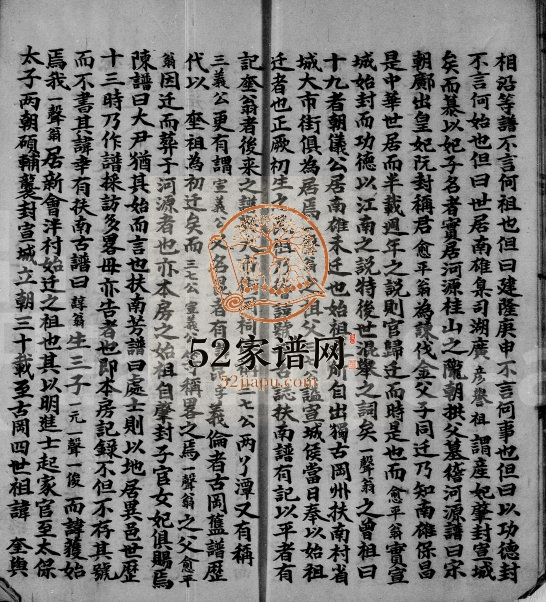 相沿等譜不言何祖也但曰建隆庚申不言何事也但曰以功德封
不言何始也但曰世居南雄臬司湖廣彥譽祖謂産妃肇封宣城
矣而纂以妃子名者實居河源桂山之隴朝拱父墓稽河源譜曰宋
朝鄺出皇妃阮封稱君愈平翁為談伐金父子同迁乃知南雄保昌
是中華世居而半載週年之說則官歸迁而時是也而愈平翁實宣
城始封而功德以江南之說特後世混舉之詞矣一聲翁之曾祖曰
十九者朝儀公居南雄未迁也始祖所自出獨古岡州扶南村省
城大市街俱為居焉祖父公謚宣城侯當日奉以始祖
迁者也正厥初生之祖乃說號誌扶南譜有記以平者有
記奎翁者後来之大市祠七公两丫潭又有稱
三義公更有謂宣義公又名者有義倫者古岡舊譜歷
代以奎祖為初迁矣而三七公宣義公等稱畧之焉一聲翁之父愈平
翁因迁而葬于河源者也亦本房之始祖自肇封子官女妃俱賜焉
陳譜曰大尹猶其始而言也扶南芳譜曰處士則以地居異邑世歷
十三時乃作譜採訪多畧毋亦告者也即本房記錄不但不存其號
而不書其諱幸有扶南古譜曰諱翁生三子一元一聲一俊而諱獲始
焉我一聲翁居新會泮村始迁之祖也其以明進士起家官至太保
太子两朝碩輔襲封宣城立朝三十載至古岡四世祖諱奎與
52家谱网
52jiapu.com